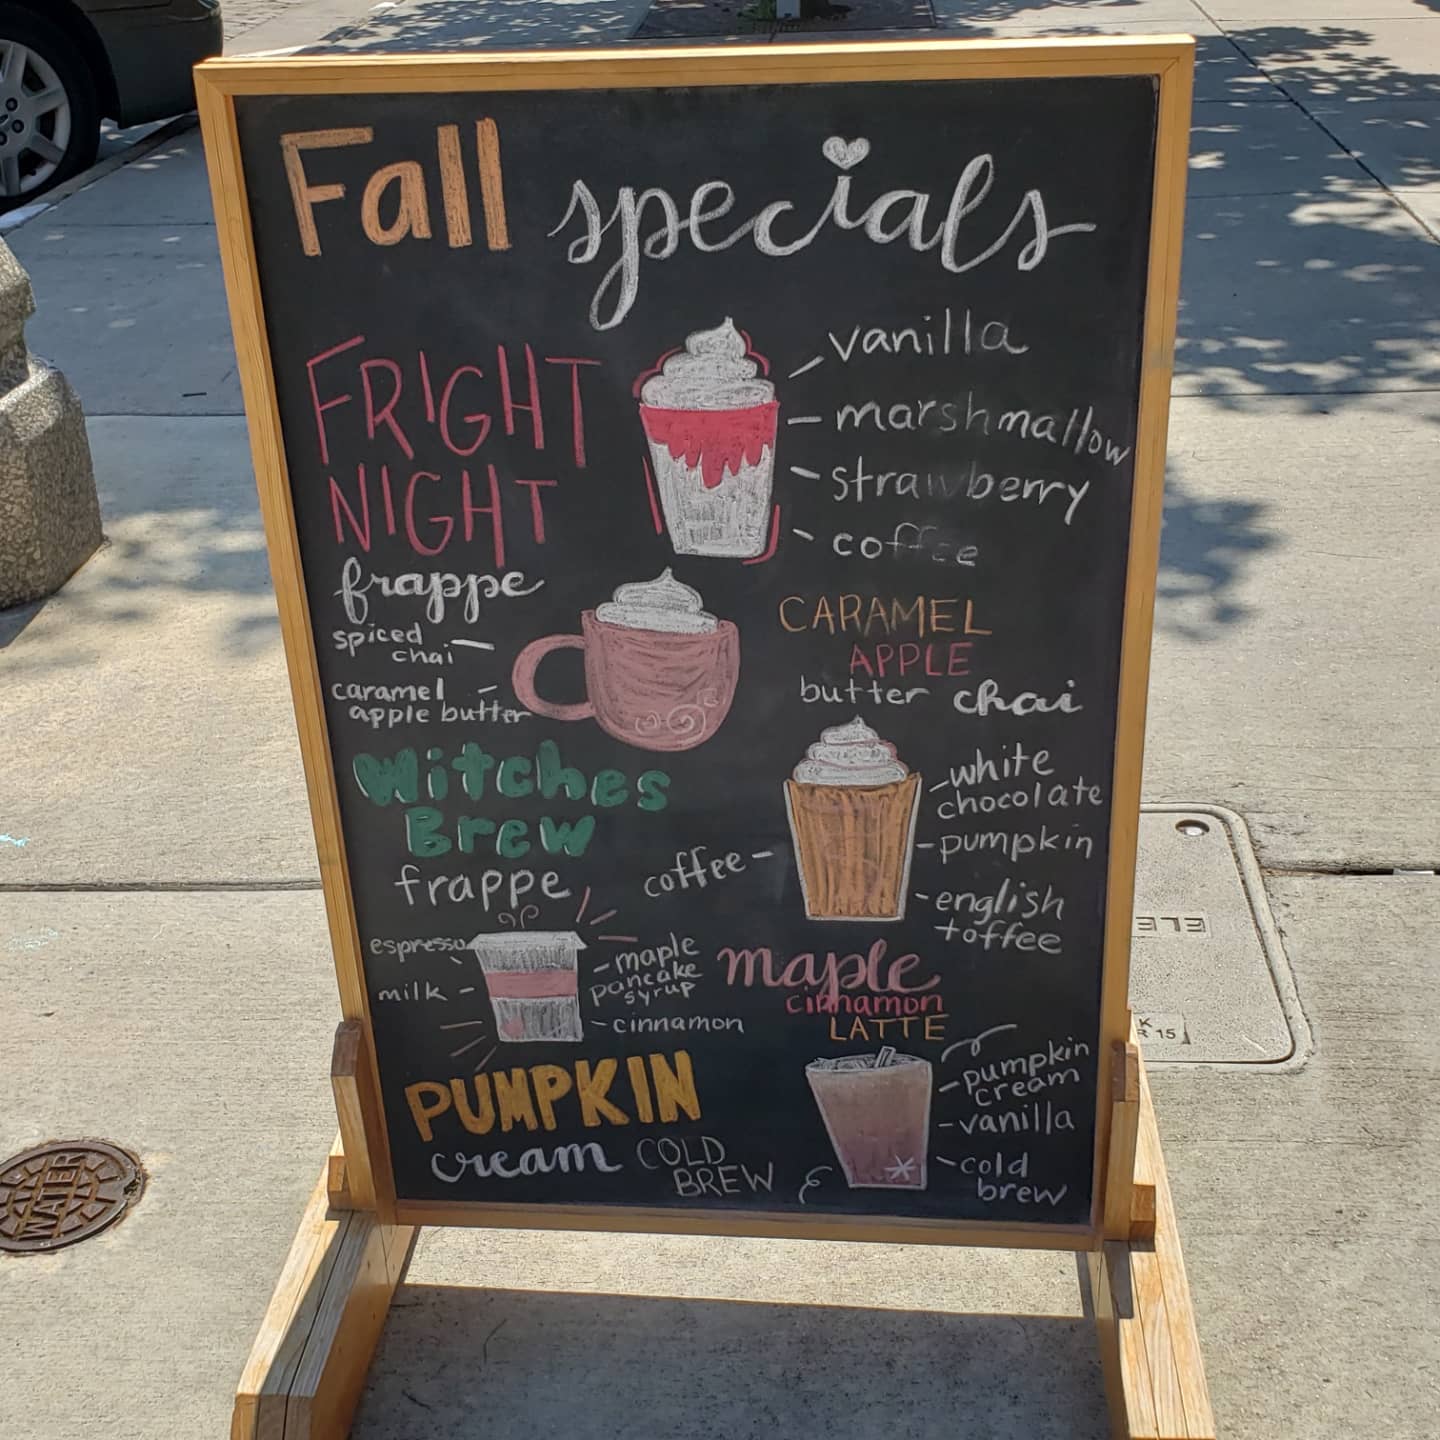 Fall specials
FRIGHT
NIGHT
frappe
vanilla
marshmallow
strawberry
coffee
spiced
chai
caramel
apple butter
CARAMEL
APPLE
butter chai
Witches
Brew
frappe
coffee
white
chocolate
pumpkin
english
toffee
espresso
milk
maple
pancake
syrup
cinnamon
maple
cinnamon
LATTE
PUMPKIN
cream COLD
BREW
pumpkin
cream
vanilla
cold
brew
WATER